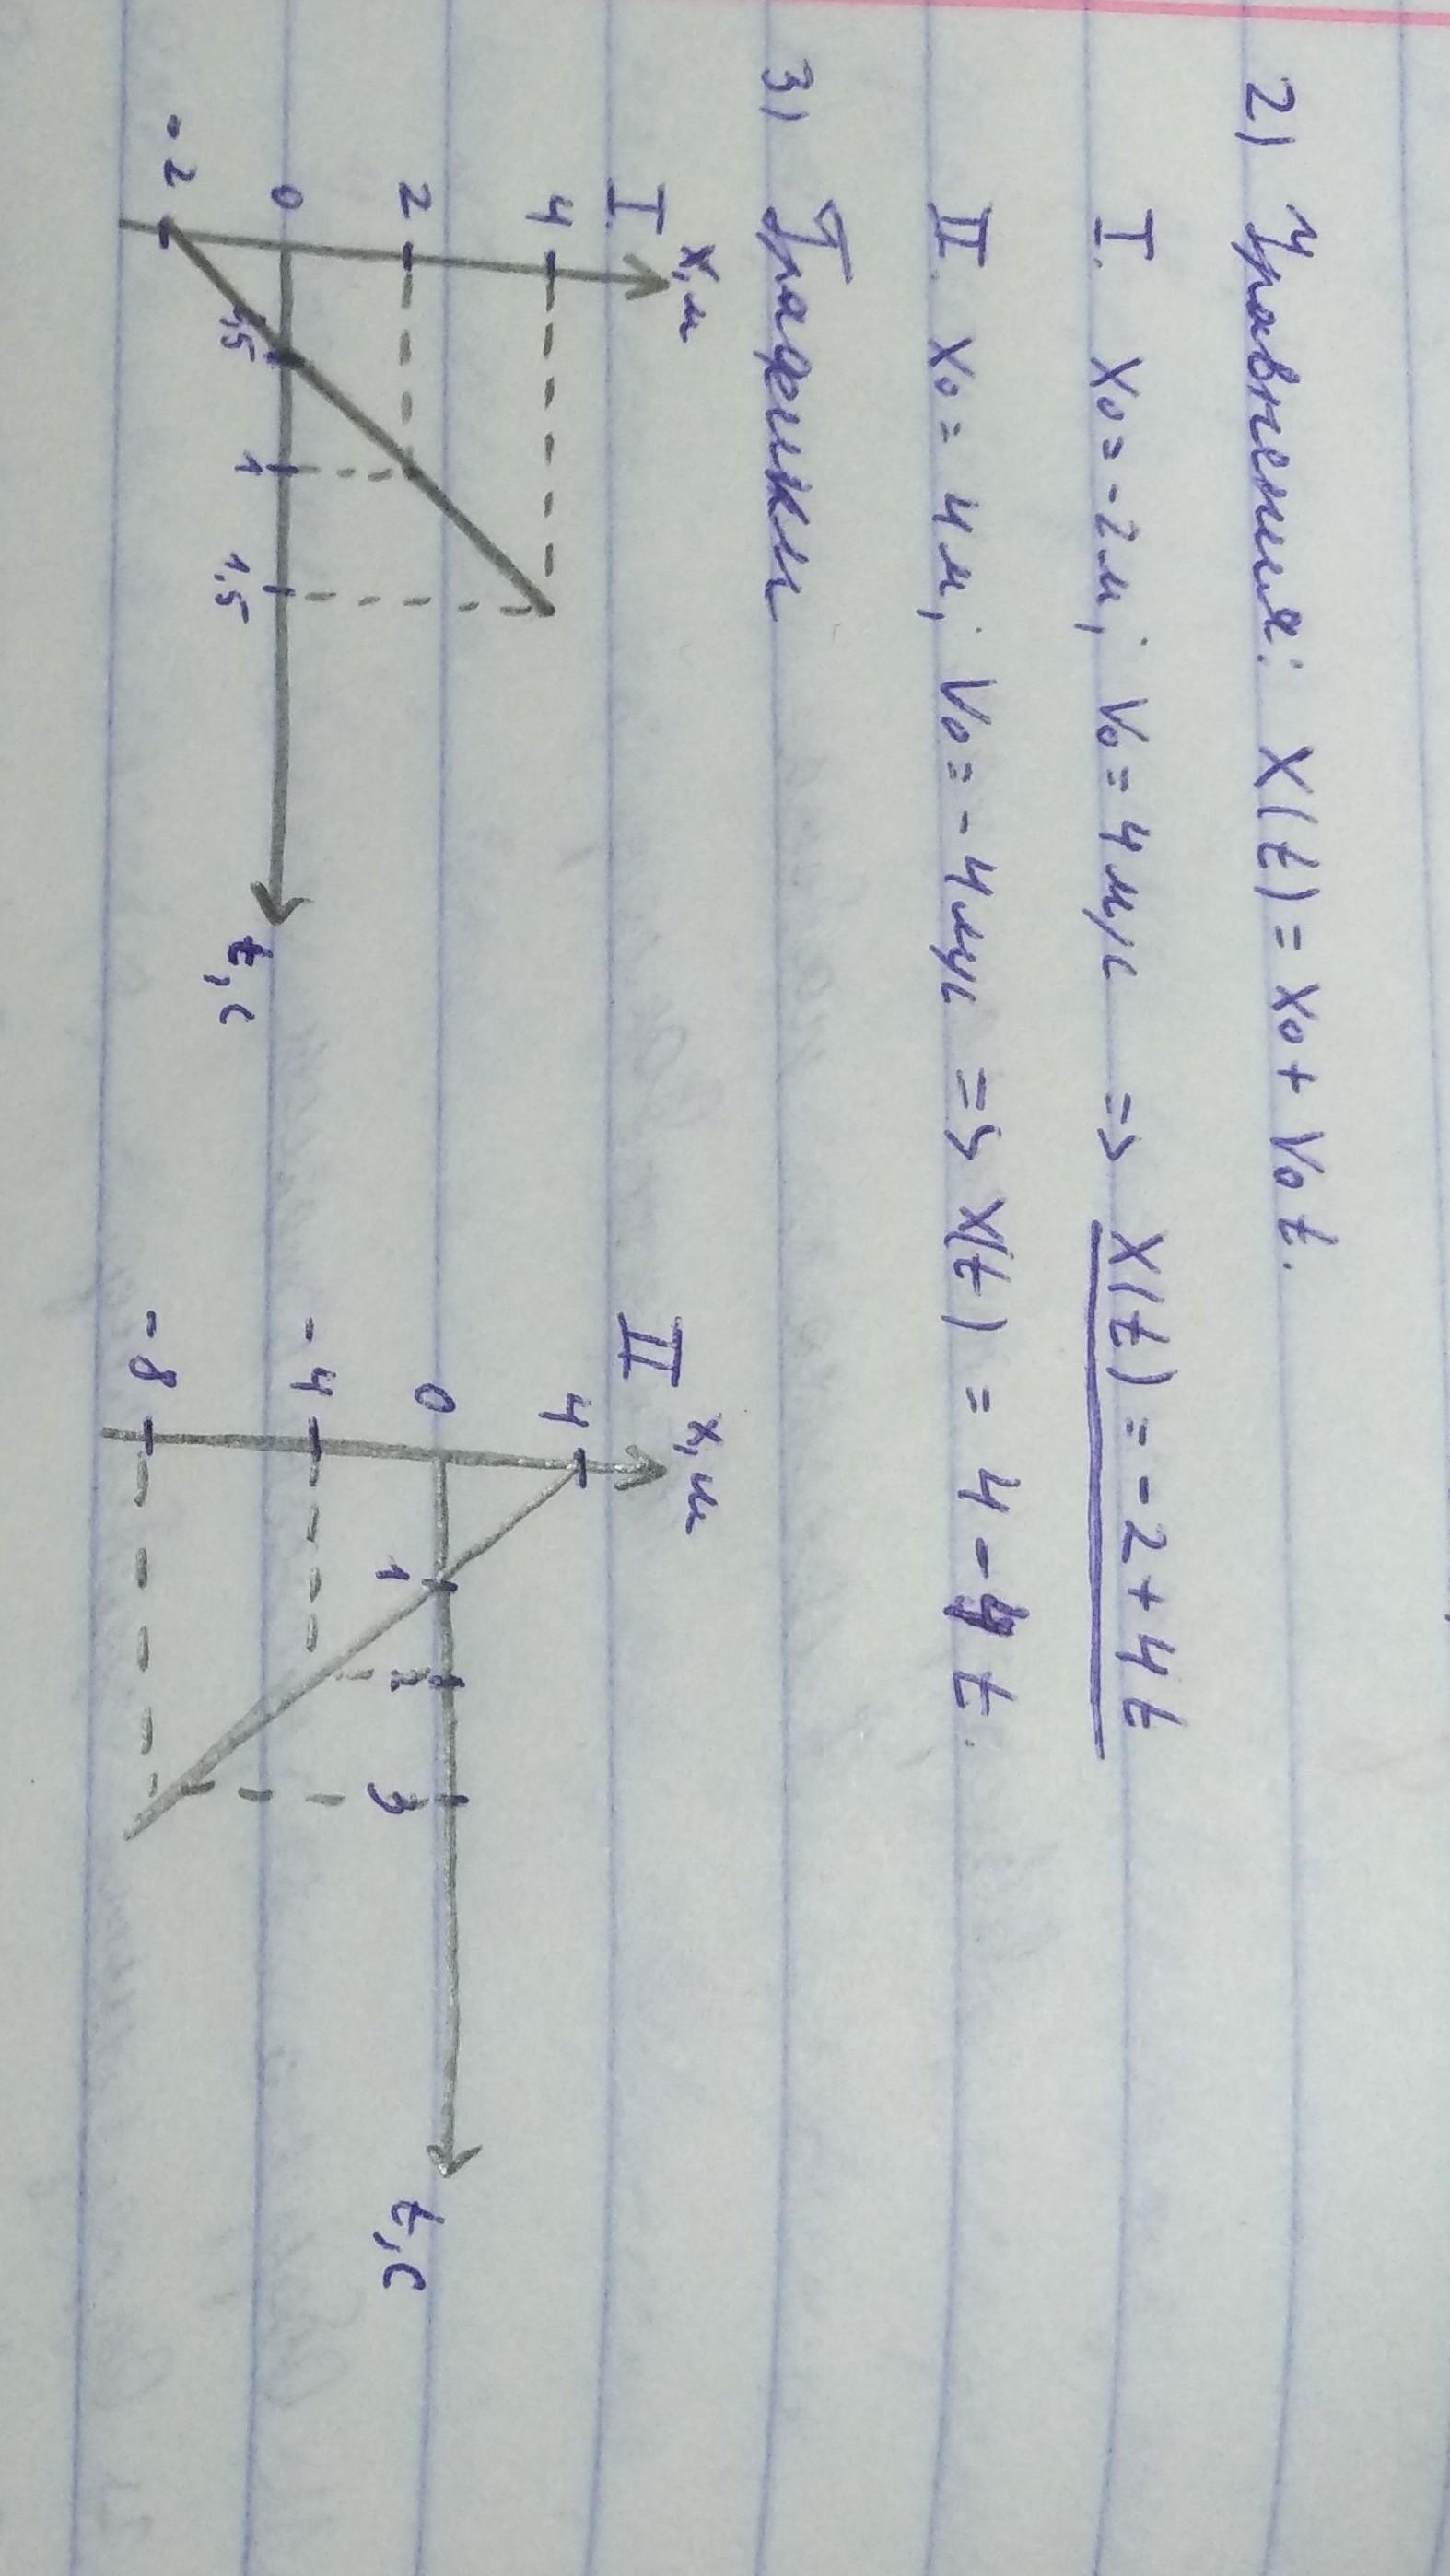 2) Уравнения: X(t) = x0 + V0 t.
I. x0 = -2м, V0 = 4 м/с => X(t) = -2 + 4t
II. x0 = 4м, V0 = -4м/с => X(t) = 4 - 4 t.
3) Графики
I x, м
4
2
0
-2
0,5
1
1,5
t, с
II x, м
4
0
-4
-8
1
2
3
t, с